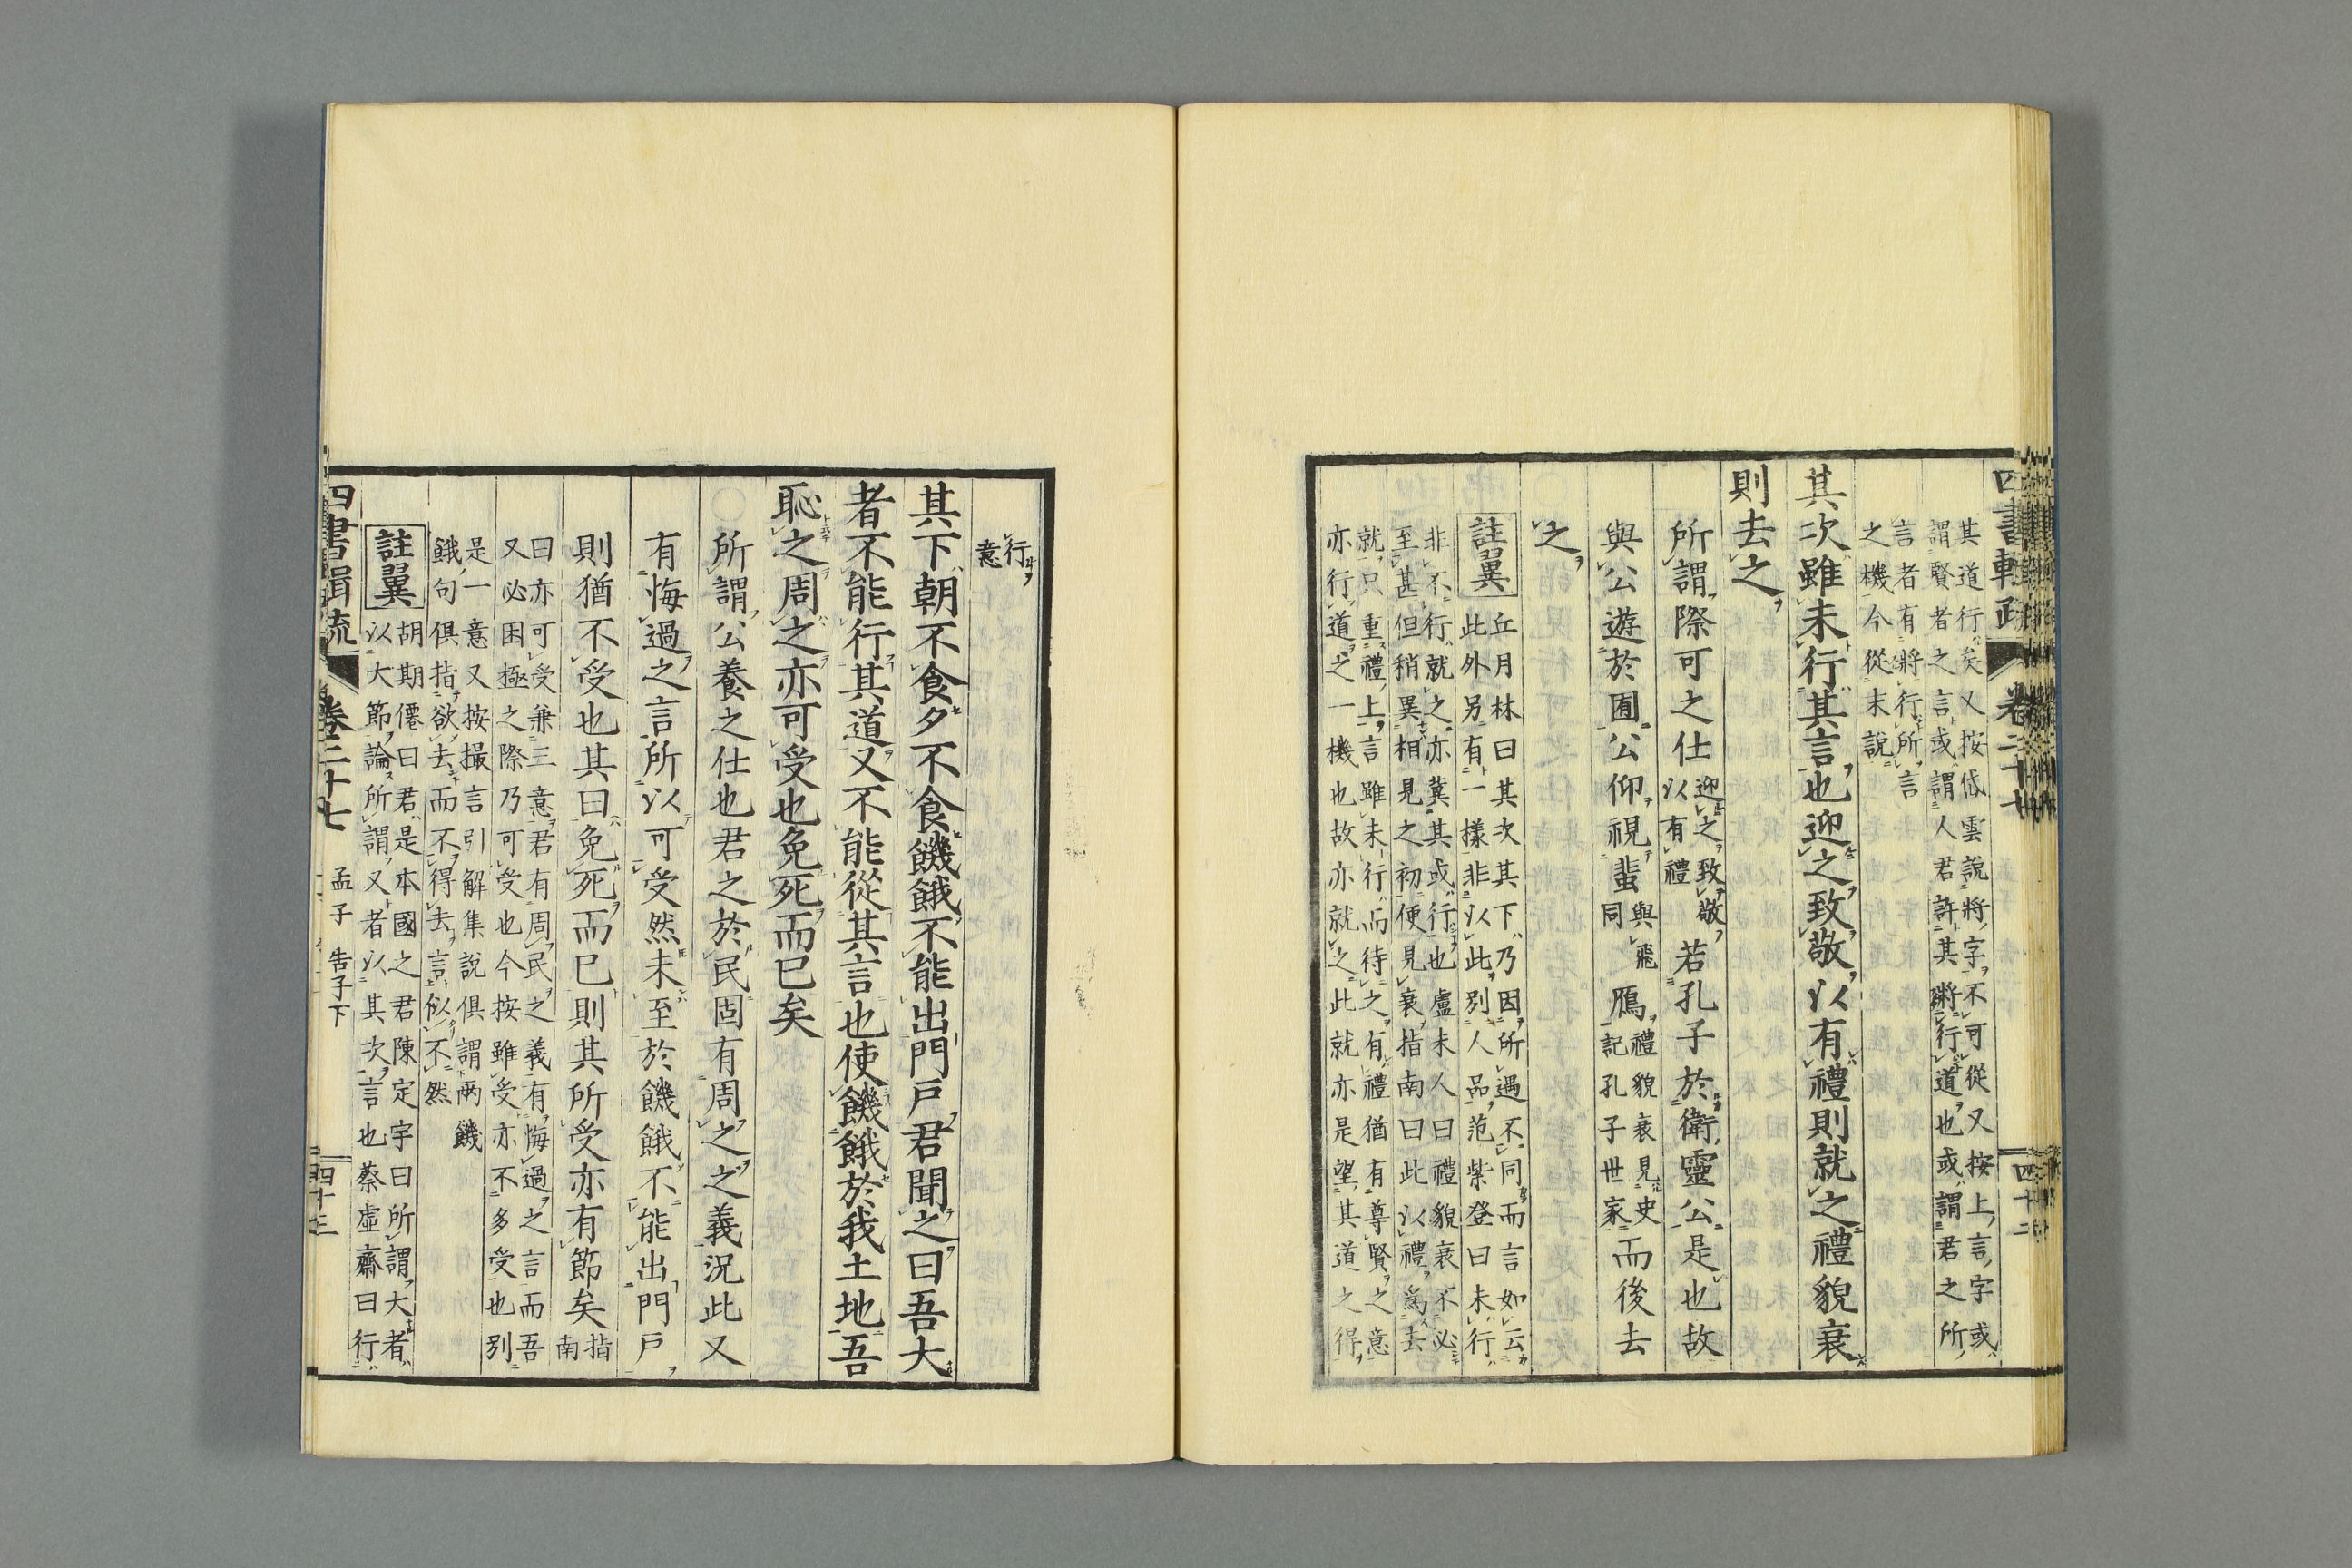 四書輯疏 卷二十七 四十二
其道行矣又按岱雲說將字不可從又按上言字或
謂賢者之言或謂人君許其將行道也或謂君之所
言者有將行所言
之機今從末說
其次雖未行其言也迎之致敬以有禮則就之禮貌衰
則去之
所謂際可之仕迎之致敬以有禮若孔子於衛靈公是也故
與公遊於囿公仰視蜚與飛同鴈禮貌衰見史記孔子世家而後去
之
註翼
丘月林曰其次其下乃因所遇不同而言如云
此外另有一樣非以此別人品范紫登曰未行
非不行就之亦冀其或行也盧未人曰禮貌衰不必
至甚但稍異相見之初便見衰指南曰此以禮爲去
就只重禮上言雖未行而待之有禮猶有尊賢之意
亦行道之一機也故亦就之此就亦是望其道之得
行
意
其下朝不食夕不食饑餓不能出門戸君聞之曰吾大
者不能行其道又不能從其言也使饑餓於我土地吾
恥之周之亦可受也免死而已矣
所謂公養之仕也君之於民固有周之之義況此又
有悔過之言所以可受然未至於饑餓不能出門戸
則猶不受也其曰免死而已則其所受亦有節矣指南
曰亦可受兼三意君有周民之義有悔過之言而吾
又必困極之際乃可受也今按雖受亦不多受也別
是一意又按撮言引解集說俱謂兩饑
餓句俱指欲去而不得去言似不然
註翼
胡期僊曰君是本國之君陳定宇曰所謂大者
以大節論所謂又者以其次言也蔡虛齋曰行
四書輯疏 卷二十七 孟子 告子下 四十三